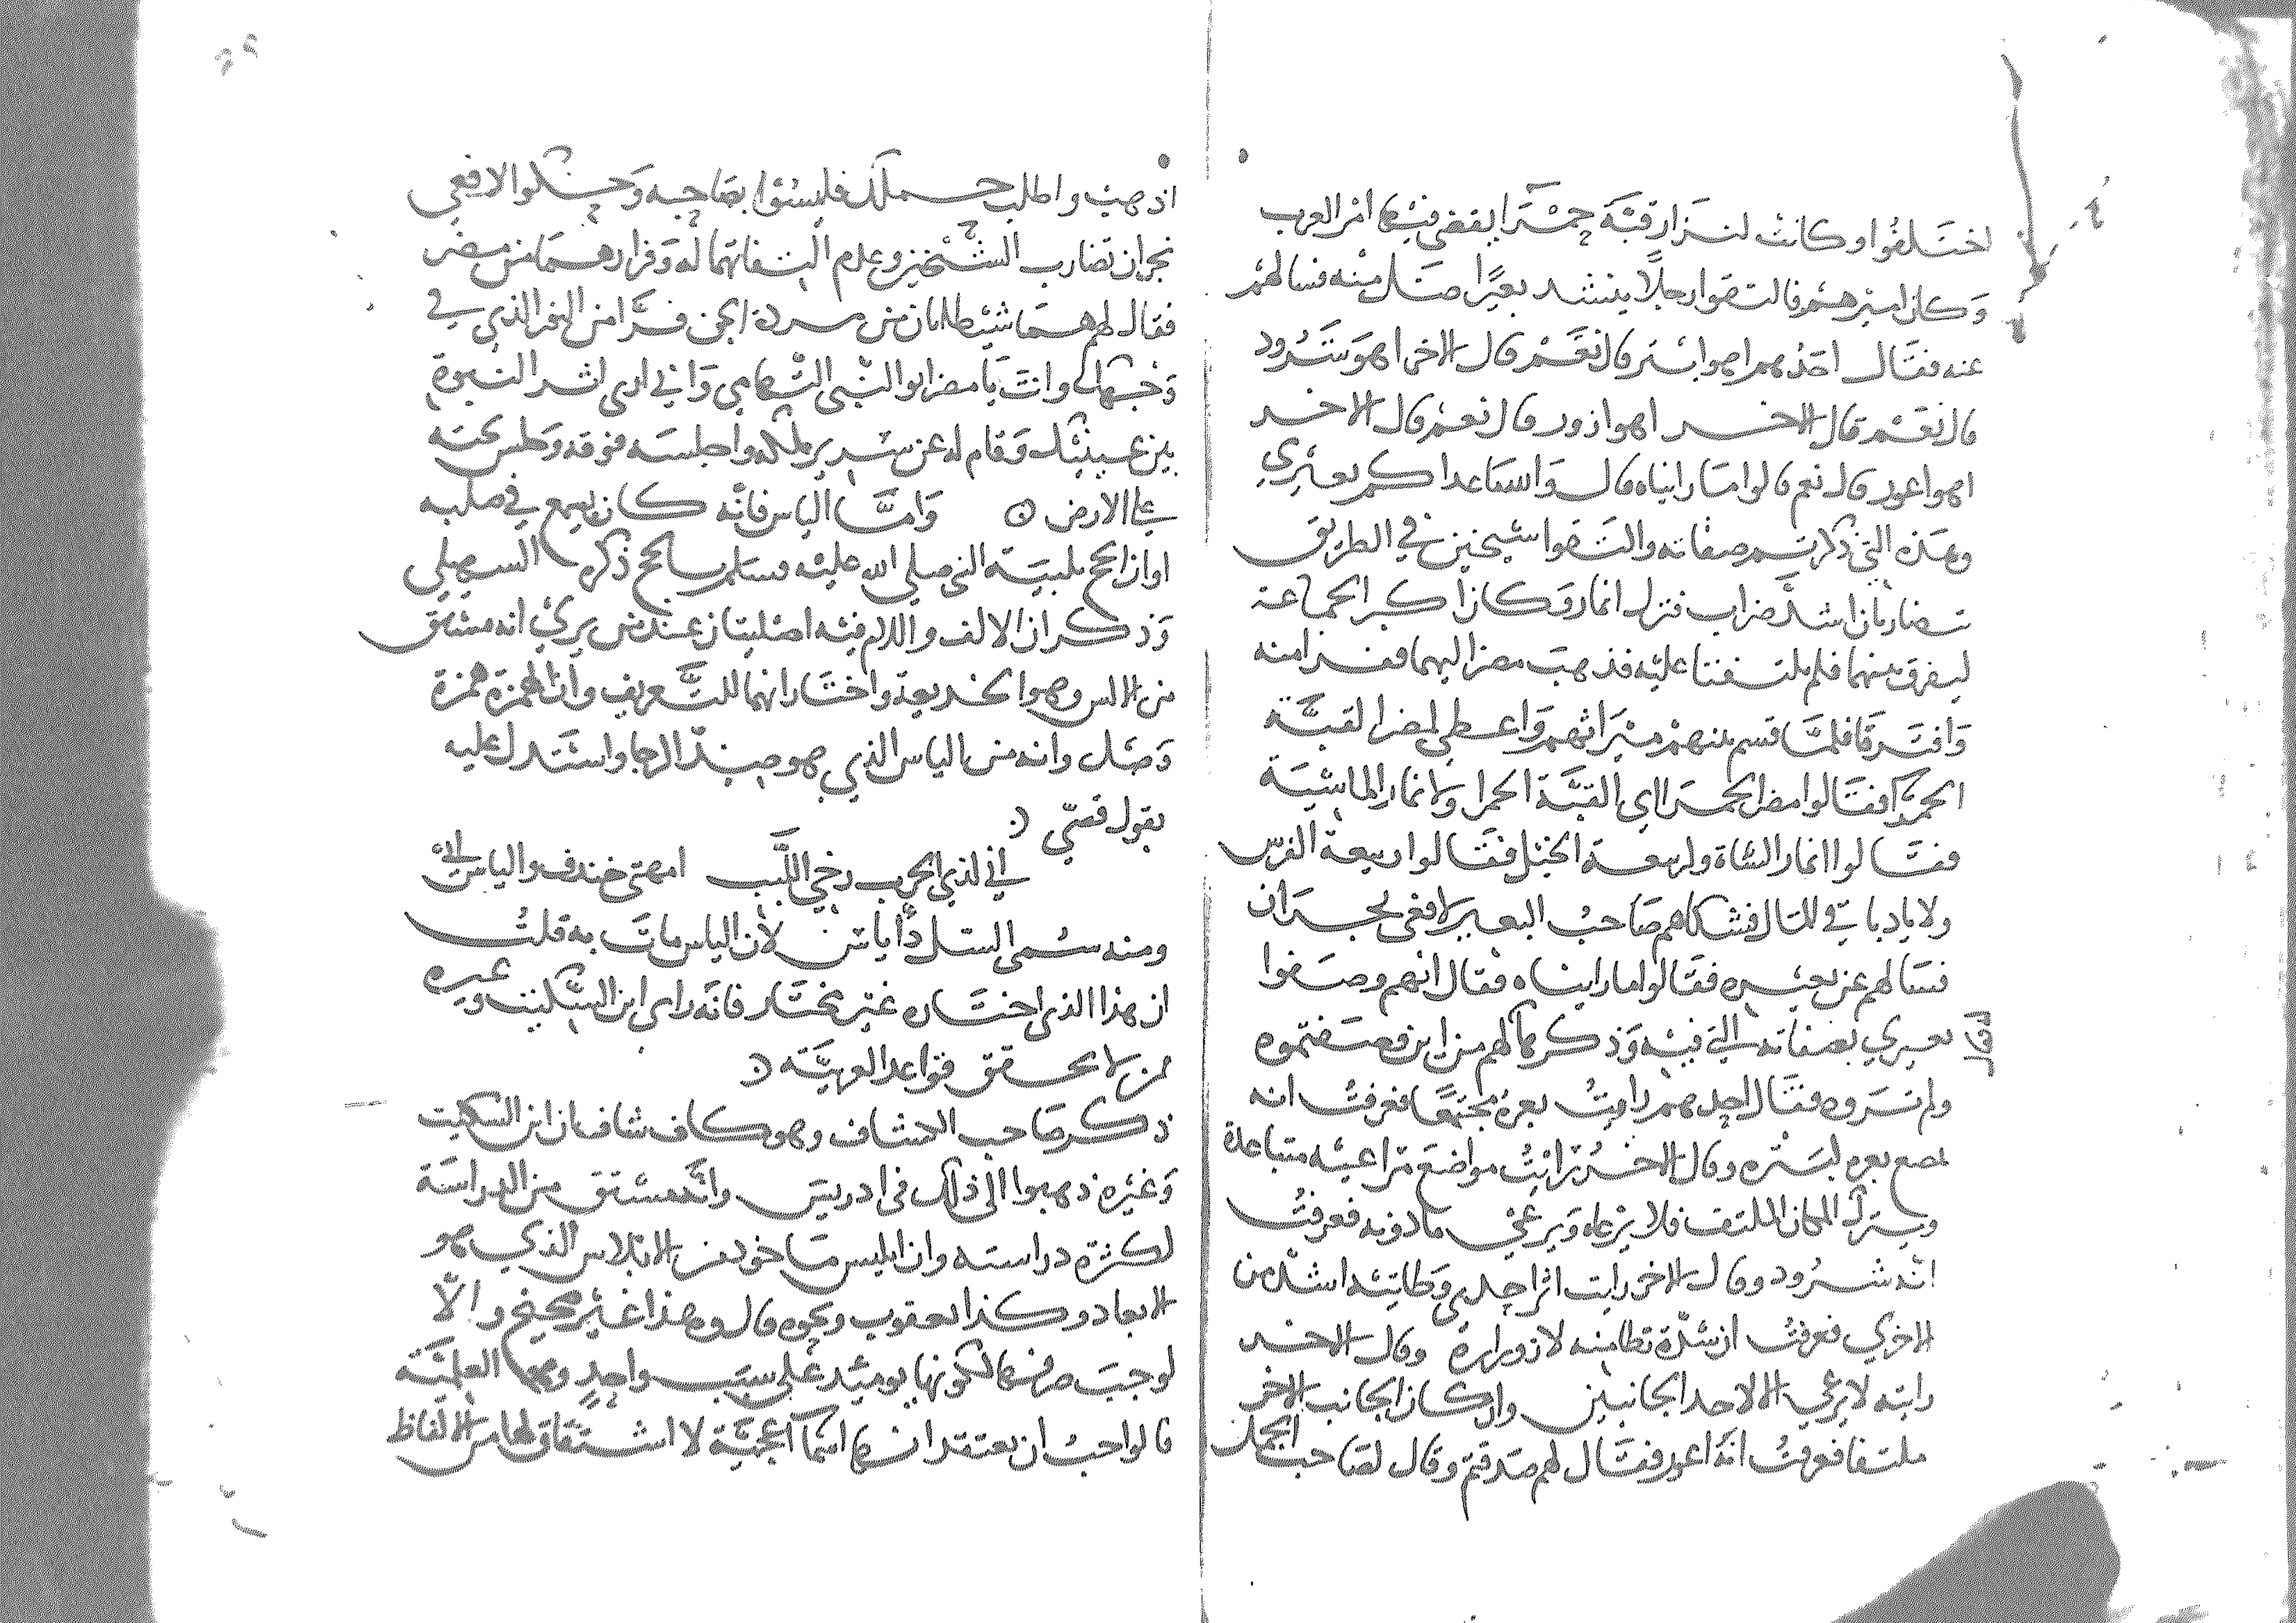 اختلفوا وكانت لنزار قبة حمرا يقضي فيها امر العرب
وكان اميرهم فالتقوا رجلا ينشد بعيرا ضل منه فسالهم
عنه فقال احدهم اهو ابتر قال نعم قال الاخر اهو شرود
قال نعم قال الاخر اهو ازور قال نعم قال الاخر
اهو اعور قال نعم قالوا ما رايناه قال واسعا عدا كم بعيري
وهذه التي ذكرتم صفاته والتقوا شيخين في الطريق
يتضاربان اشد ضراب فنزل انمار وكان اكبر الجماعة
ليفرق بينهما فلم يلتفتا عليه فذهب مضر اليهما ففرا منه
وافترقا فلما قسم بينهم ميراثهم واعطي لمضر القبة
الحمرا فقالوا مضر الحمرا اي القبة الحمرا ولانمار الماشية
فقالوا انمار الشاة ولربيعة الخيل فقالوا ربيعة الفرس
ولاياد باقي المال فشكاهم صاحب البعير لافعى نجران
فسالهم عن بعيره فقالوا ما رايناه فقال انهم وصفوا
بعيري بصفاته التي فيه وذكرها لهم من اين وصفتموه
اوقال
ولم تروه فقال احدهم رايت بعره مجتمعا فعرفت انه
بعره لبتره وقال الاخر رايت مواضع مراعيه متباعدة
ويترك المكان الملتف فلا يرعاه ويرعى ما دونه فعرفت
انه شرود وقال الاخر رايت اثر احدي وطاتيه اشد من
الاخري فعرفت ان شدة وطا منه لازوراره وقال الاخر
رايته لا يرعي الا لاحد الجانبين وان كان الجانب الاخر
ملتفا فعرفت انه اعور فقال لهم صدقتم وقال لصاحب الجمل
اذهب واطلب جملك فليسوا بصاحبه وحكوا لافعي
نجران تضارب الشيخين وعدم التفاتهما له وفرارهما من مضر
فقال لهم هما شيطانان من مردة الجن فرا من النور الذي في
وجهك وانت يا مضر ابو النبي التهامي واني اري اثر النبوة
بين عينيك وقام له عن سرير ملكه واجلسه فوقه وجلس تحته
علي الارض واما الياس فانه كان يسمع في صلبه
اوان الحج تلبية النبي صلي الله عليه وسلم بالحج ذكره السهيلي
وذكر ان الالف واللام فيه اصليتان عند من يري انه مشتق
من الالس وهو الخديعة واختار انهما للتعريف وان الهمزة همزة
وصل وانه من الياس الذي هو ضد الرجا واستدل عليه
بقول قصي
اني لذي الحرب رخي اللبب امهتي خندف والياس ابي
ومنه سمي السل داياس لان الياس مات به قلت
ان هذا الذي اختاره غير مختار فانه راي ابن السكيت وغيره
ممن لا يحقق قواعد العربية
ذكر صاحب الكشاف وهو كاف شاف ان ابن السكيت
وغيره ذهبوا الى ذلك في ادريس وانه مشتق من الدراسة
لكثرة دراسته وان ابليس ماخوذ من الابلاس الذي هو
الابعاد وكذا يعقوب ونحوه قال وهذا غير صحيح والا
لوجب صرفها لكونها يوميذ علي سبب واحد وهو العلمية
فالواجب ان يعتقد انها اسما اعجمية لا اشتقاق لها من الالفاظ